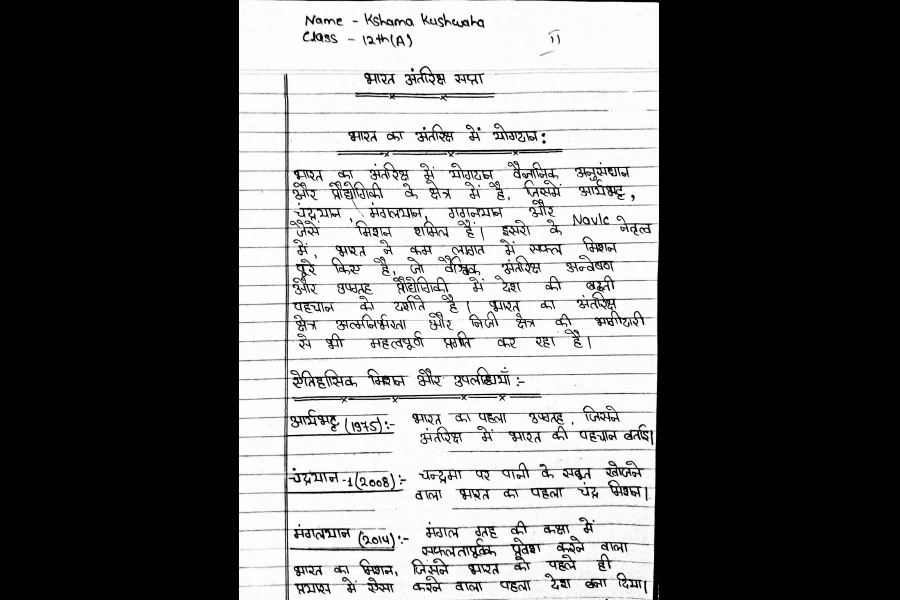 Name - Kshama Kushwaha
Class - 12th(A)
11
भारत अंतरिक्ष सप्ना
भारत का अंतरिक्ष में योगदान:
भारत का अंतरिक्ष में योगदान वैज्ञानिक अनुसंधान
और प्रौद्योगिकी के क्षेत्र में है, जिसमें आर्यभट्ट,
चंद्रयान, मंगलयान, गगनयान और Navic
जैसे मिशन शामिल हैं। इसरो के नेतृत्व
में, भारत ने कम लागत में सफल मिशन
पूरे किए है, जो वैश्विक अंतरिक्ष अन्वेषण
और उपग्रह प्रौद्योगिकी में देश की बढ़ती
पहचान को दर्शाते है। भारत का अंतरिक्ष
क्षेत्र आत्मनिर्भरता और निजी क्षेत्र की भागीदारी
से भी महत्वपूर्ण प्रगति कर रहा है।
ऐतिहासिक मिशन और उपलब्धियाँ:-
आर्यभट्ट (1975):- भारत का पहला उपग्रह, जिसने
अंतरिक्ष में भारत की पहचान बनाई।
चंद्रयान-1(2008):- चन्द्रमा पर पानी के सबूत खोजने
वाला भारत का पहला चंद्र मिशन।
मंगलयान (2014):- मंगल ग्रह की कक्षा में
सफलतापूर्वक प्रवेश करने वाला
भारत का मिशन, जिसने भारत को पहले ही
प्रयास में ऐसा करने वाला पहला देश बना दिया।